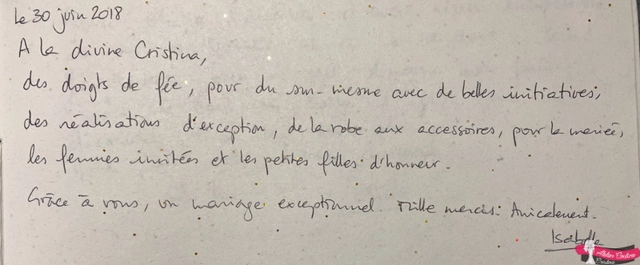 Le 30 juin 2018
A la divine Cristina,
des doigts de fée, pour du sur-mesure avec de belles initiatives,
des réalisations d'exception, de la robe aux accessoires, pour la mariée,
les femmes invitées et les petites filles d'honneur.
Grâce à vous, un mariage exceptionnel. Mille mercis. Amicalement.
Isabelle